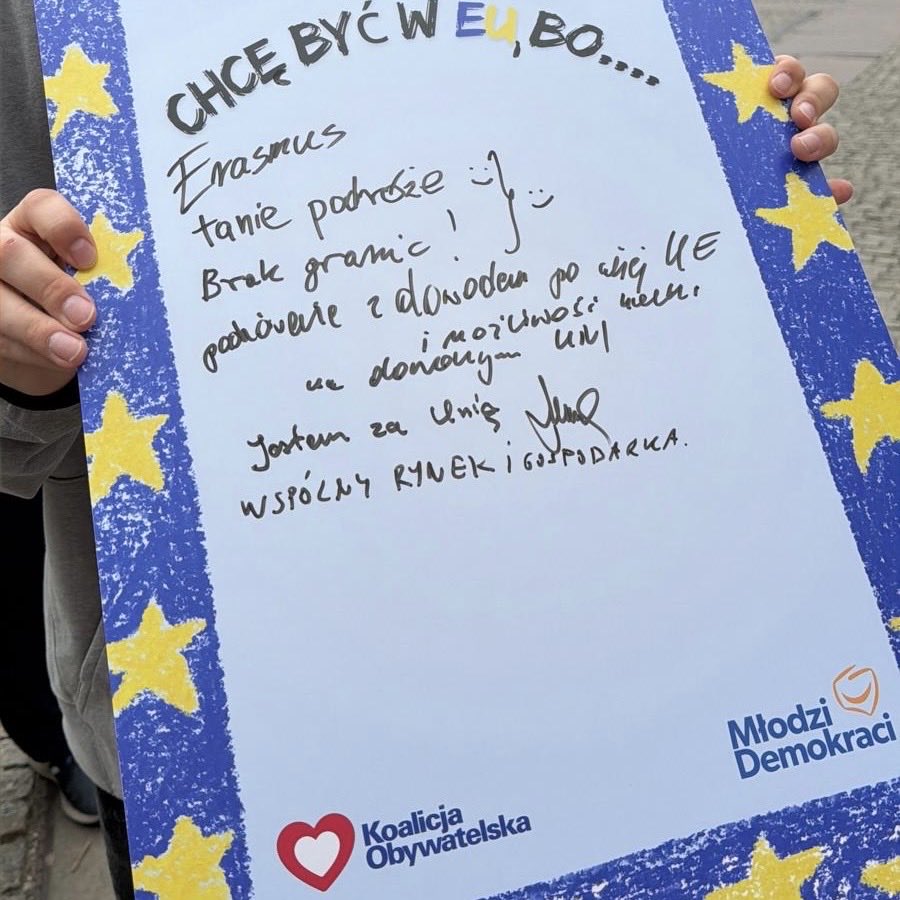 CHCĘ BYĆ W EU, BO....
Erasmus
tanie podróże :)
Brak granic! :)
podróżenie z dowodem po całej UE
i możliwość
na dowolnym UNI
Jestem za Unią
WSPÓLNY RYNEK i GOSPODARKA.
Młodzi
Demokraci
Koalicja
Obywatelska